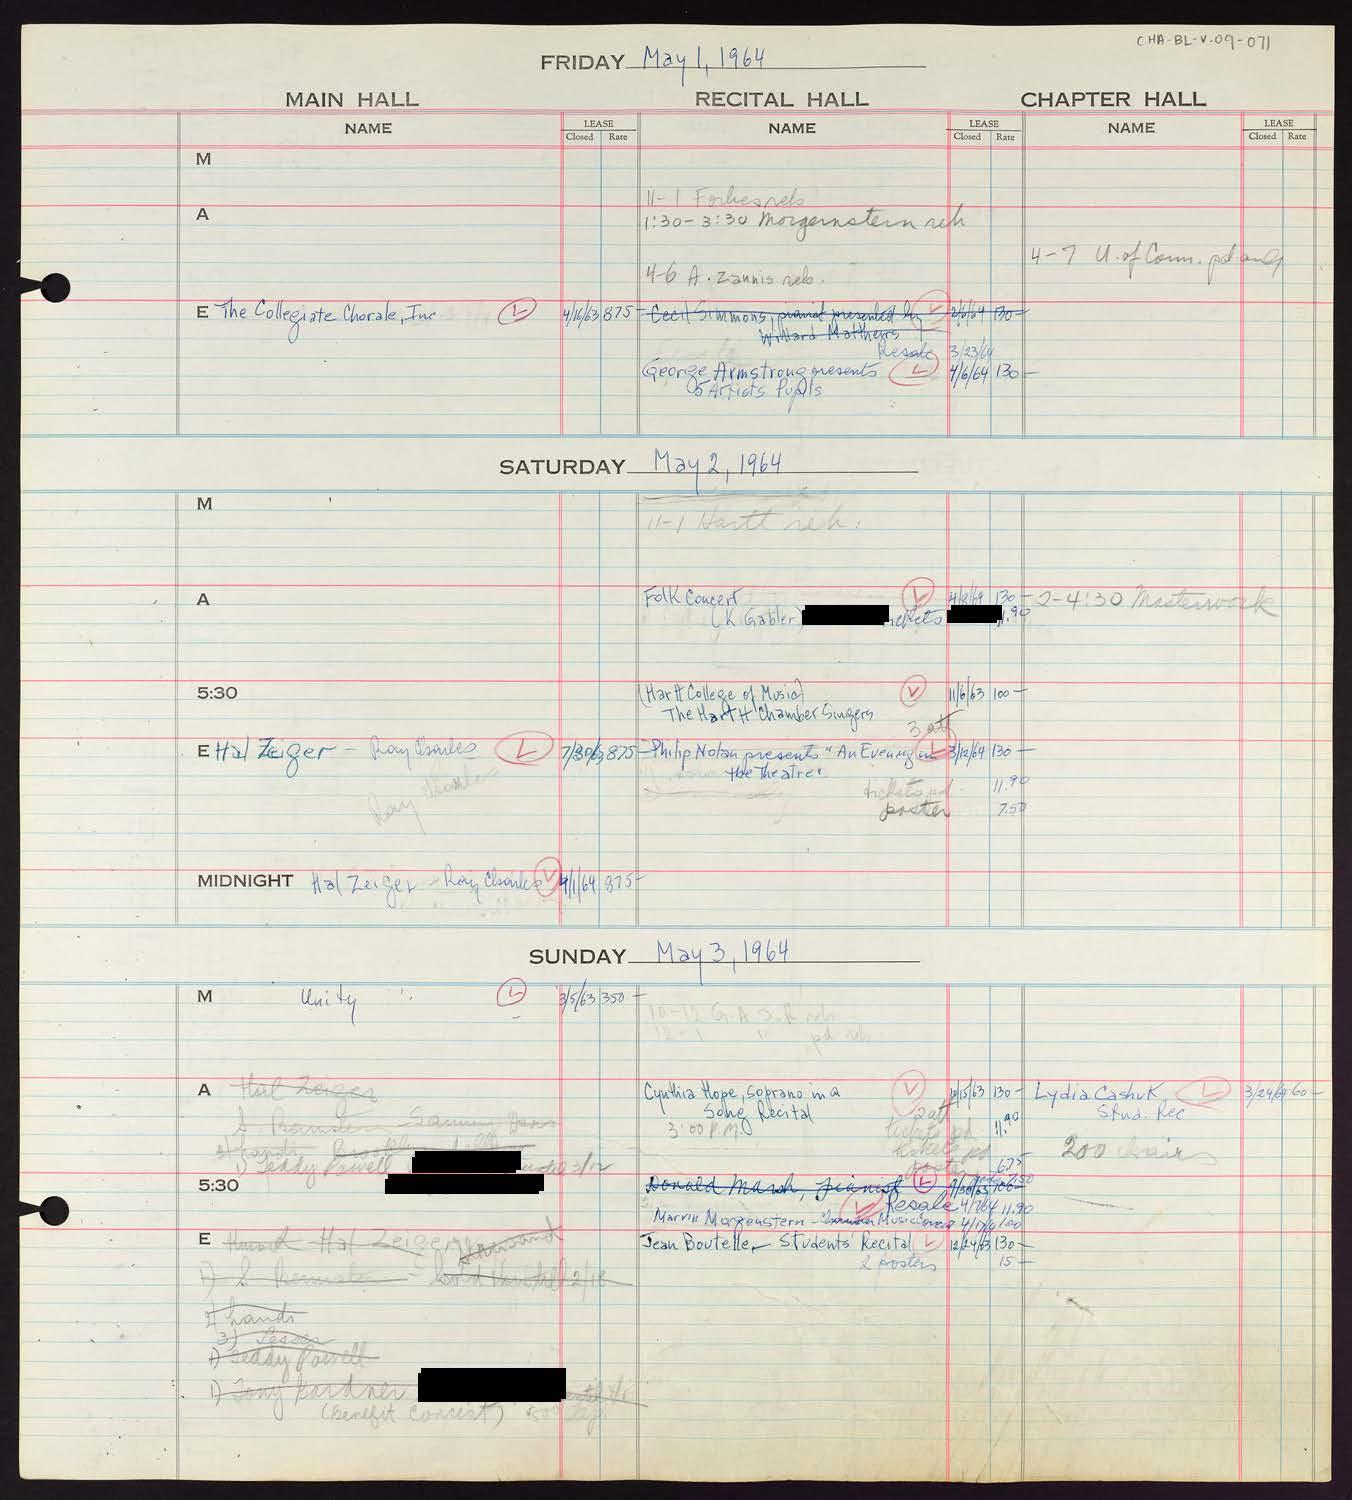 CHA-BL-V-09-071
FRIDAY May 1, 1964
MAIN HALL RECITAL HALL CHAPTER HALL
NAME LEASE Closed Rate NAME LEASE Closed Rate NAME LEASE Closed Rate
M
11-1 Forbes reh
A
1:30-3:30 Morgenstern reh
4-7 U. of Conn. pd
4-6 A. Zannis reh.
E The Collegiate Chorale, Inc L 4/16/63 875- Cecil Simmons, pianist presented by L 2/6/64 130-
Willard Matthews
Resale 3/23/64
George Armstrong presents L 4/6/64 130-
5 Artists Pupils
SATURDAY May 2, 1964
M
11-1 Hartt reh.
A Folk Concert L 4/8/64 130- 2-4:30 Masterwork
(K Gabler)
5:30 (Hartt College of Music) L 11/6/63 100-
The Hartt Chamber Singers
3 att
E Hal Zeiger - Ray Charles L 7/30/63 875- Philip Nolan presents "An Evening in L 3/12/64 130-
the Theatre"
Ray Charles
tickets pd. 11.90
poster 7.50
MIDNIGHT Hal Zeiger - Ray Charles L 4/1/64 875-
SUNDAY May 3, 1964
M Unity L 3/5/63 350-
10-12 G.A.S.R reh
12-1 " pd reh
A Hal Zeiger Cynthia Hope, soprano in a L 10/15/63 130- Lydia Cashuk L 3/24/64 60-
Song Recital Stud. Rec
3:00 P.M.
2 att 11.90
tickets pd
200 chairs
Teddy Powell 3/12
poster
5:30 Donald Marsh, pianist L 100-
Resale 11.90
Marvin Morgenstern - Chamber Music 100
E Hal Zeiger Jean Boutelle - Students' Recital L 12/24/63 130-
2 posters 15-
1) S Bernstein
2) Lands
3)
4) Teddy Powell
1) Tony Gardner
(Benefit Concert)